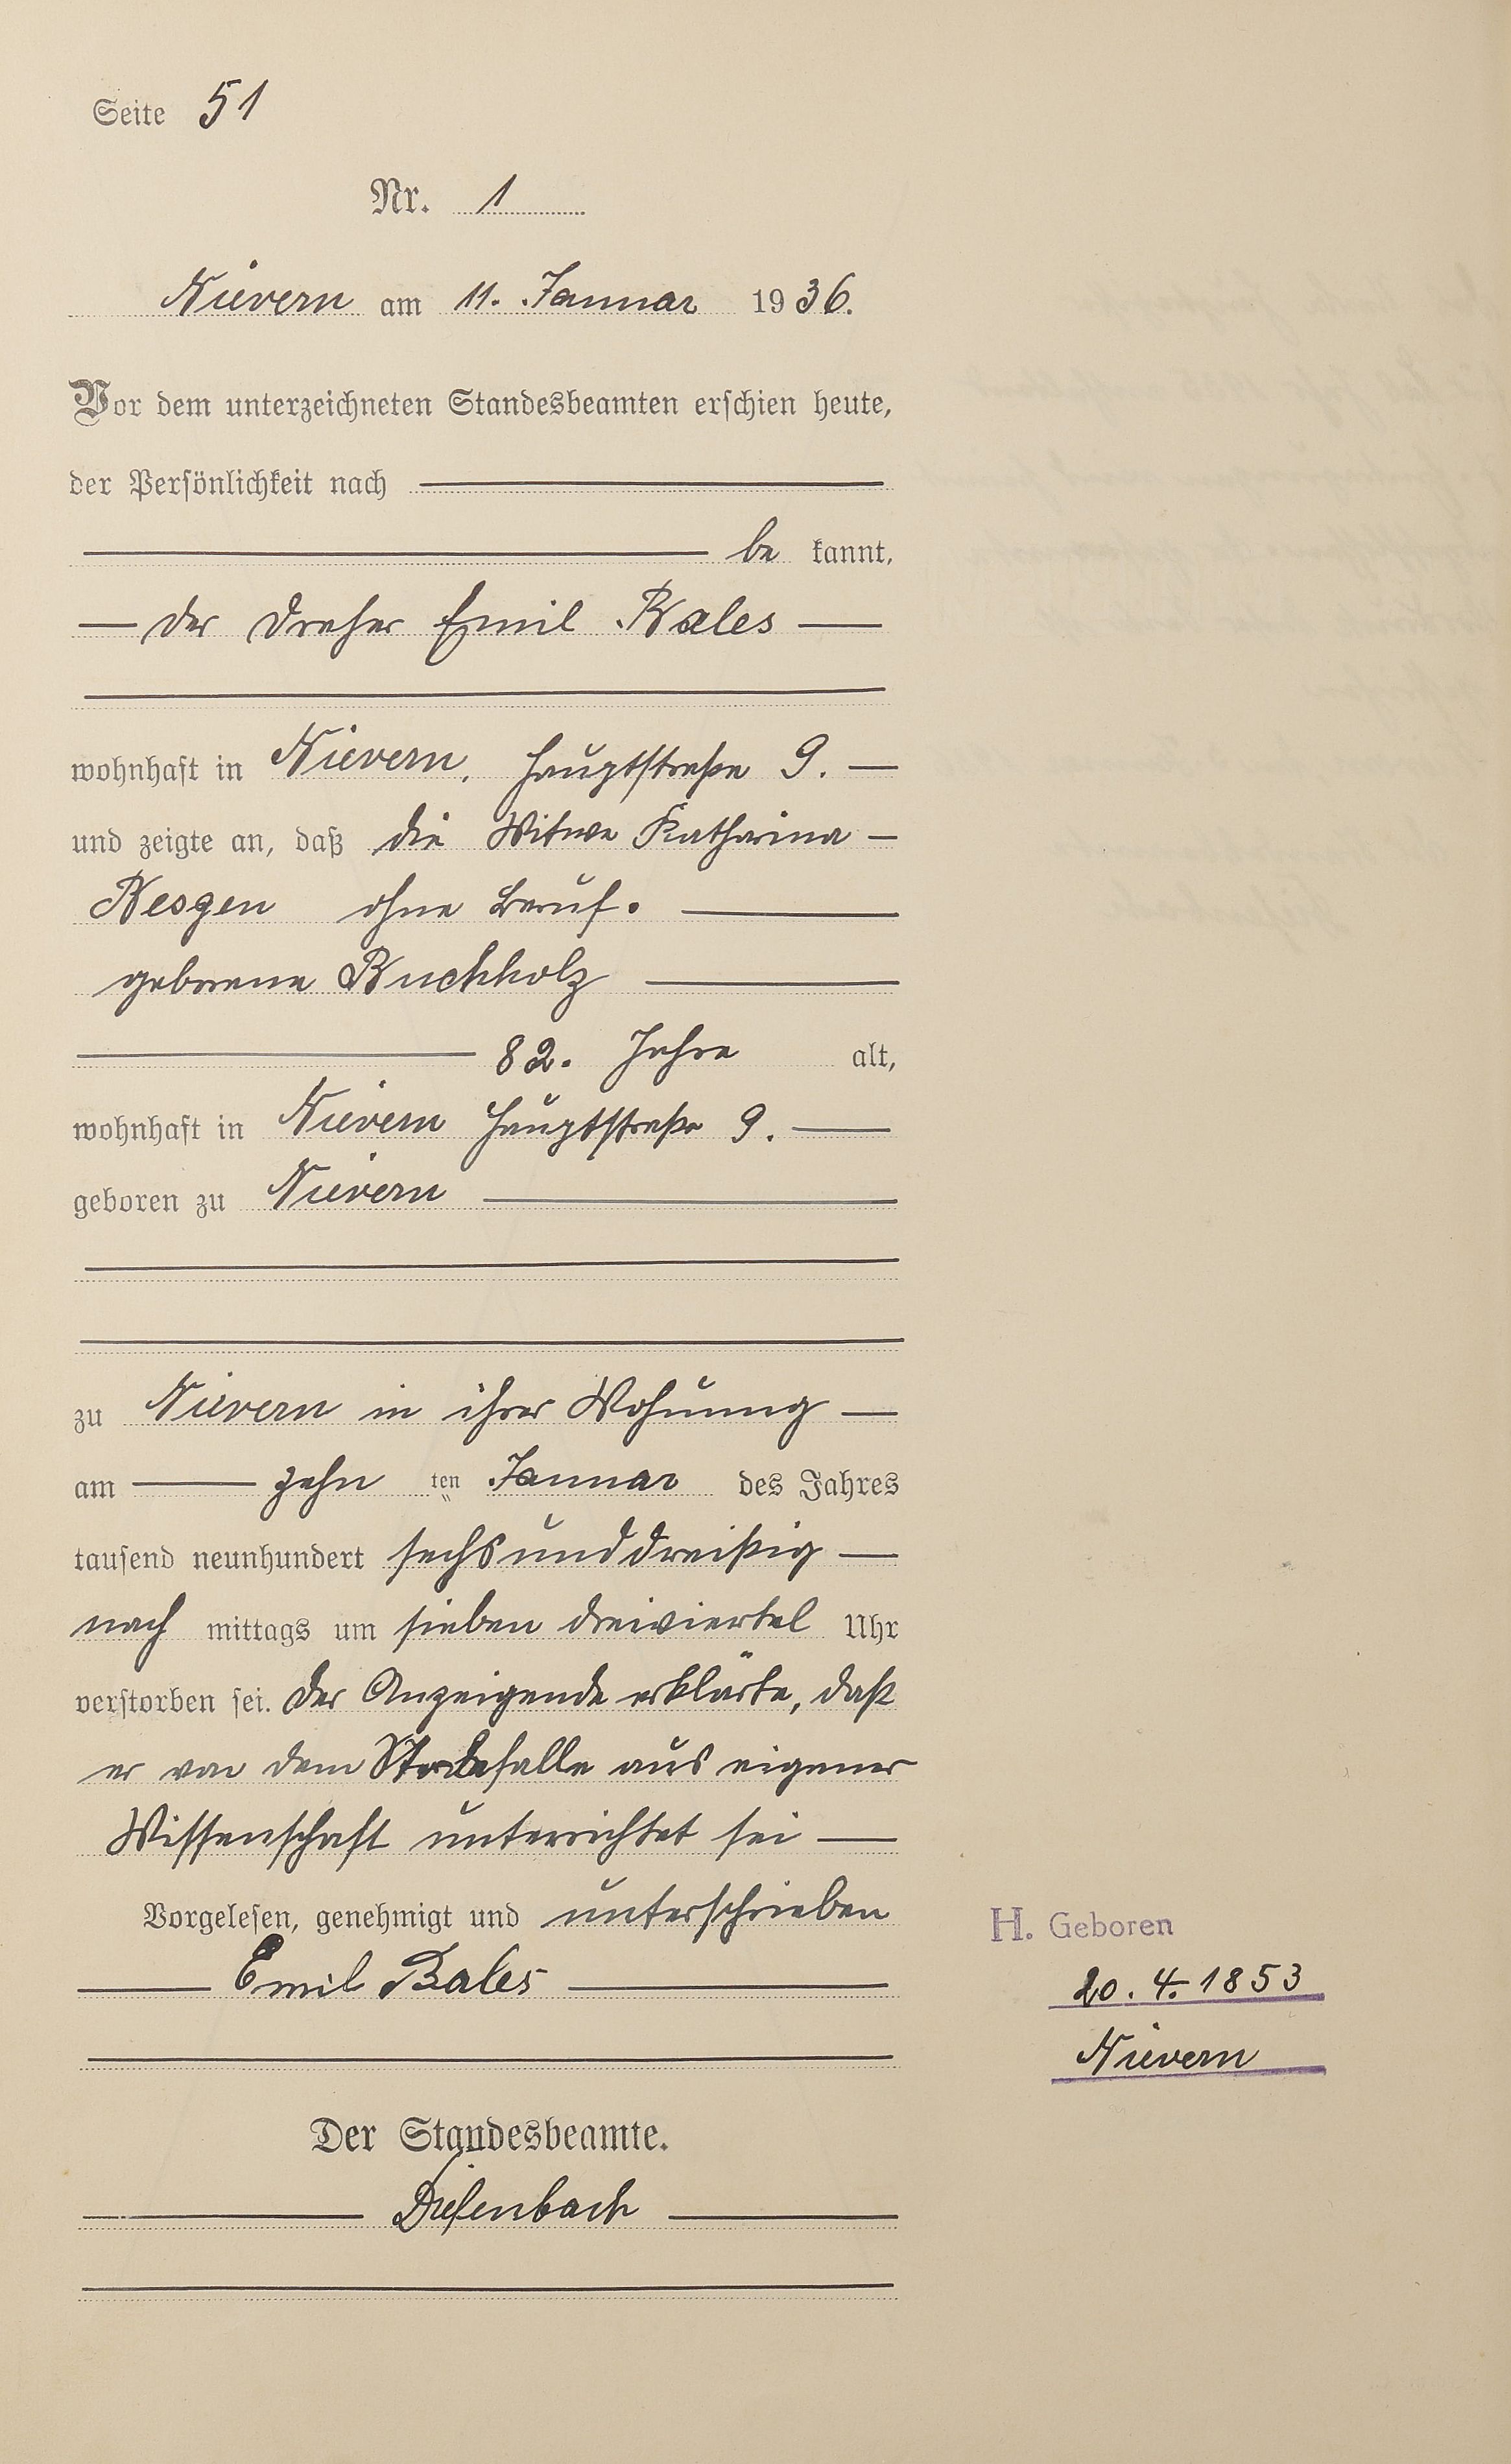 Seite 51
Nr. 1
Nievern am 11. Januar 1936.
Vor dem unterzeichneten Standesbeamten erschien heute,
der Persönlichkeit nach
be kannt,
der Dreher Emil Bales
wohnhaft in Nievern, Hauptstraße 9.
und zeigte an, daß die Witwe Katharina
Besgen ohne Beruf.
geborene Buchholz
82. Jahre alt,
wohnhaft in Nievern Hauptstraße 9.
geboren zu Nievern
zu Nievern in ihrer Wohnung
am zehn ten Januar des Jahres
tausend neunhundert sechsunddreißig
nach mittags um sieben dreiviertel Uhr
verstorben sei. Der Anzeigende erklärte, daß
er von dem Sterbefalle aus eigener
Wissenschaft unterrichtet sei
Vorgelesen, genehmigt und unterschrieben
Emil Bales
H. Geboren
20. 4. 1853
Nievern
Der Standesbeamte.
Diefenbach